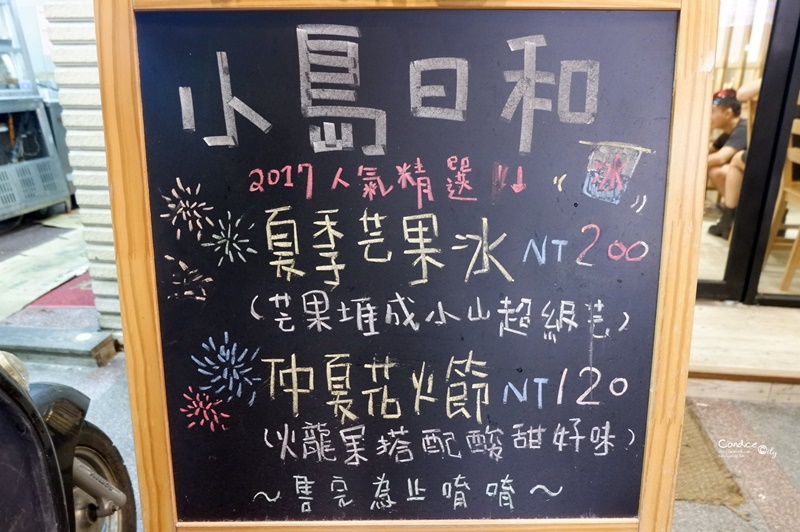 小島日和
2017人氣精選!!↓
冰
夏季芒果冰 NT200
(芒果堆成小山超級芒)
仲夏花火節 NT120
(火龍果搭配酸甜好味)
~售完為止唷唷~
Candice City